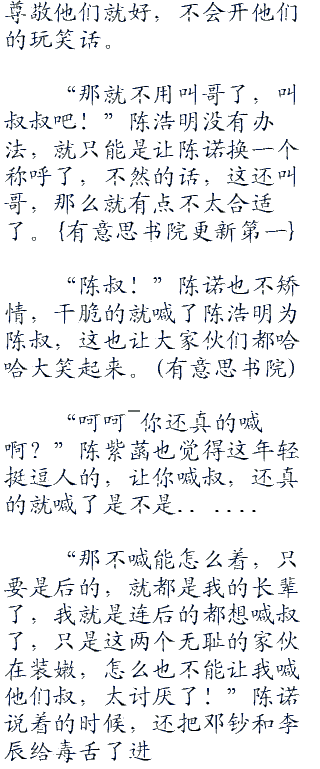 尊敬他们就好，不会开他们
的玩笑话。
“那就不用叫哥了，叫
叔叔吧！”陈浩明没有办
法，就只能是让陈诺换一个
称呼了，不然的话，这还叫
哥，那么就有点不太合适
了。{有意思书院更新第一}
“陈叔！”陈诺也不矫
情，干脆的就喊了陈浩明为
陈叔，这也让大家伙们都哈
哈大笑起来。(有意思书院)
“呵呵¯你还真的喊
啊？”陈紫菡也觉得这年轻
挺逗人的，让你喊叔，还真
的就喊了是不是．．．．．．
“那不喊能怎么着，只
要是后的，就都是我的长辈
了，我就是连后的都想喊叔
了，只是这两个无耻的家伙
在装嫩，怎么也不能让我喊
他们叔，太讨厌了！”陈诺
说着的时候，还把邓钞和李
辰给毒舌了进